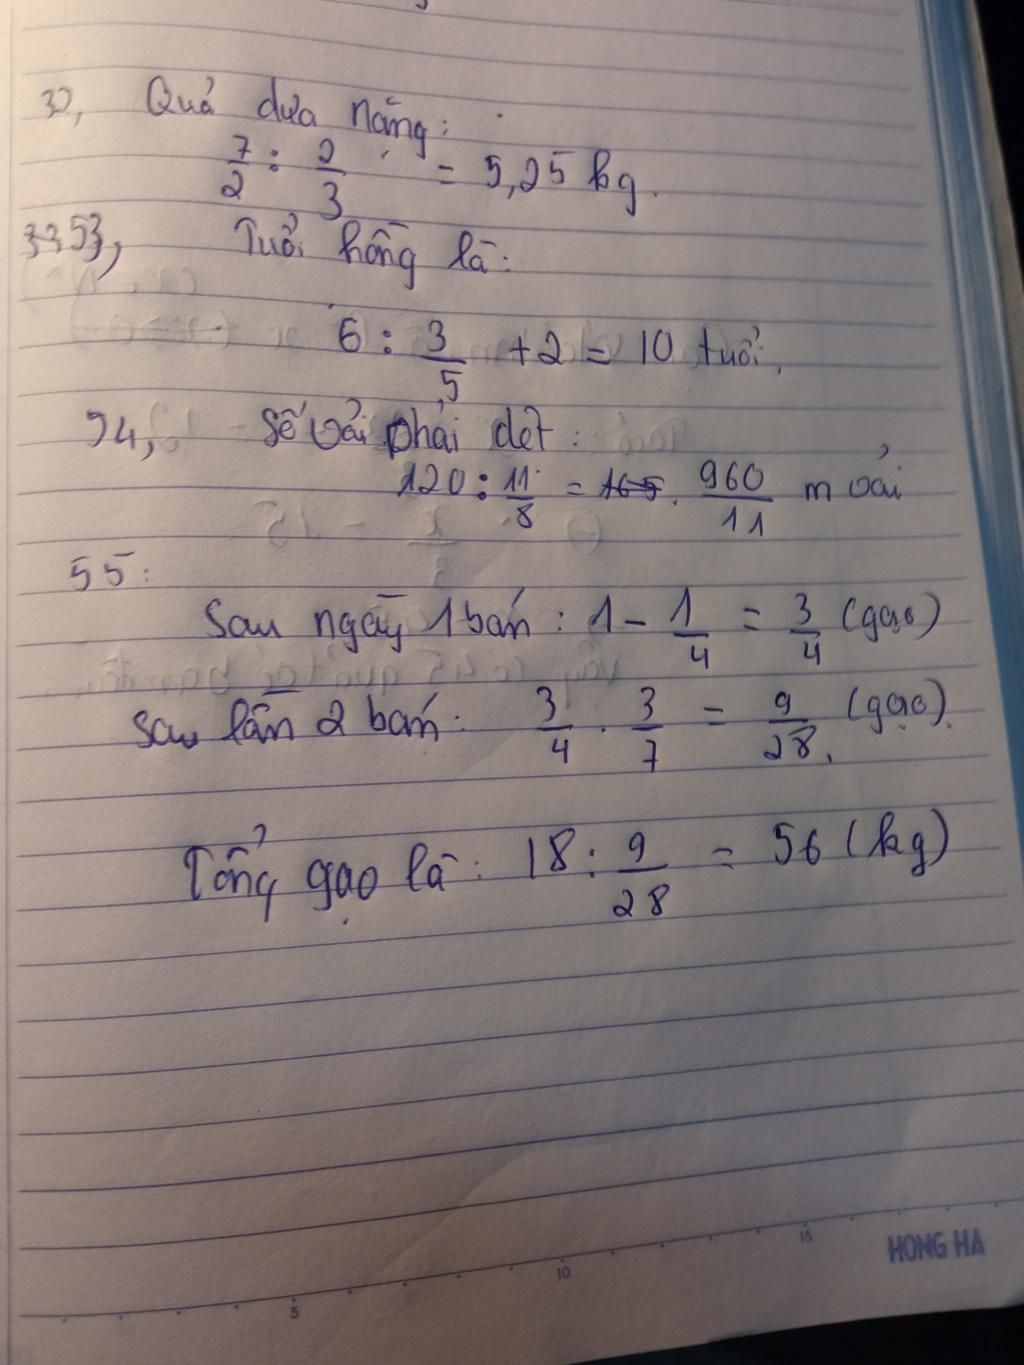 Quả dưa nặng:
7/2 : 2/3 = 5,25 kg.
Tuổi hồng là:
6 : 3/5 + 2 = 10 tuổi.
94, Số vải phải dệt:
120 : 11/8 = 165. 960/11 m vải
55:
Sau ngày 1 bán: 1 - 1/4 = 3/4 (gạo)
Sau lần 2 bán: 3/4 . 3/7 = 9/28. (gạo).
Tổng gạo là: 18 : 9/28 = 56 (kg)
5 10 15
HONG HA